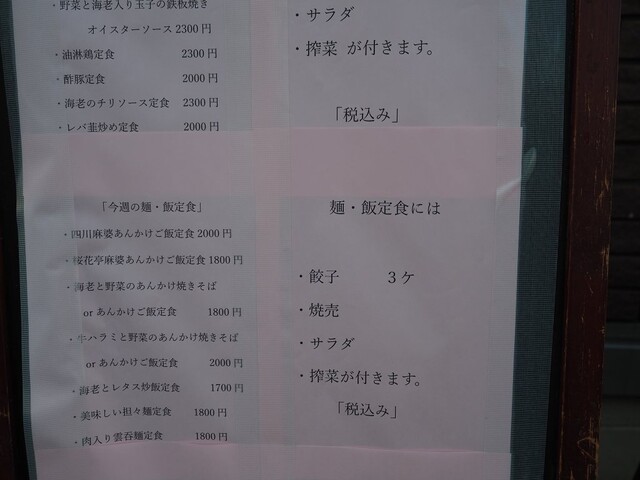 ・野菜と海老入り玉子の鉄板焼き
オイスターソース 2300 円
・油淋鶏定食 2300 円
・酢豚定食 2000 円
・海老のチリソース定食 2300 円
・レバ韮炒め定食 2000 円
「今週の麺・飯定食」
・四川麻婆あんかけご飯定食 2000 円
・桜花亭麻婆あんかけご飯定食 1800 円
・海老と野菜のあんかけ焼きそば
or あんかけご飯定食 1800 円
・牛ハラミと野菜のあんかけ焼きそば
or あんかけご飯定食 2000 円
・海老とレタス炒飯定食 1700 円
・美味しい担々麺定食 1800 円
・肉入り雲呑麺定食 1800 円
・サラダ
・搾菜 が付きます。
「税込み」
麺・飯定食には
・餃子 3ケ
・焼売
・サラダ
・搾菜が付きます。
「税込み」